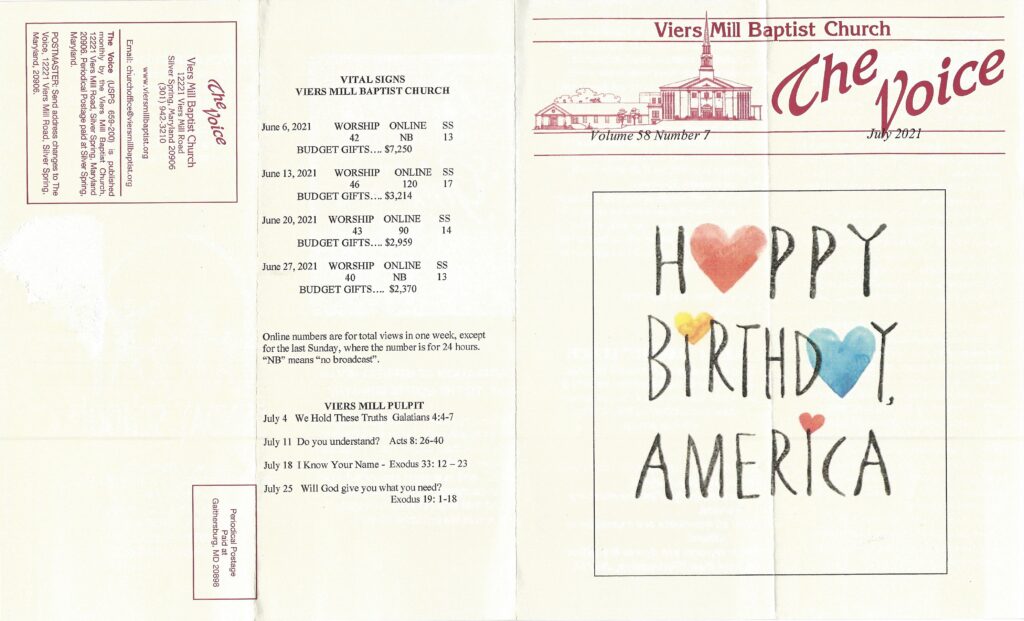 The Voice
Viers Mill Baptist Church
12221 Viers Mill Road
Silver Spring, Maryland 20906
(301) 942-3210
www.viersmillbaptist.org
Email: churchoffice@viersmillbaptist.org
The Voice (USPS 659-200) is published
monthly by the Viers Mill Baptist Church,
12221 Viers Mill Road, Silver Spring, Maryland
20906. Periodical Postage paid at Silver Spring,
Maryland.
POSTMASTER: Send address changes to The
Voice, 12221 Viers Mill Road, Silver Spring,
Maryland, 20906.
Periodical Postage
Paid at
Gaithersburg, MD 20898
VITAL SIGNS
VIERS MILL BAPTIST CHURCH
June 6, 2021 WORSHIP ONLINE SS
42 NB 13
BUDGET GIFTS…. $7,250
June 13, 2021 WORSHIP ONLINE SS
46 120 17
BUDGET GIFTS…. $3,214
June 20, 2021 WORSHIP ONLINE SS
43 90 14
BUDGET GIFTS…. $2,959
June 27, 2021 WORSHIP ONLINE SS
40 NB 13
BUDGET GIFTS…. $2,370
Online numbers are for total views in one week, except
for the last Sunday, where the number is for 24 hours.
“NB” means “no broadcast”.
VIERS MILL PULPIT
July 4 We Hold These Truths Galatians 4:4-7
July 11 Do you understand? Acts 8: 26-40
July 18 I Know Your Name - Exodus 33: 12 – 23
July 25 Will God give you what you need?
Exodus 19: 1-18
Viers Mill Baptist Church
The Voice
Volume 58 Number 7 July 2021
HAPPY
BIRTHDAY,
AMERICA